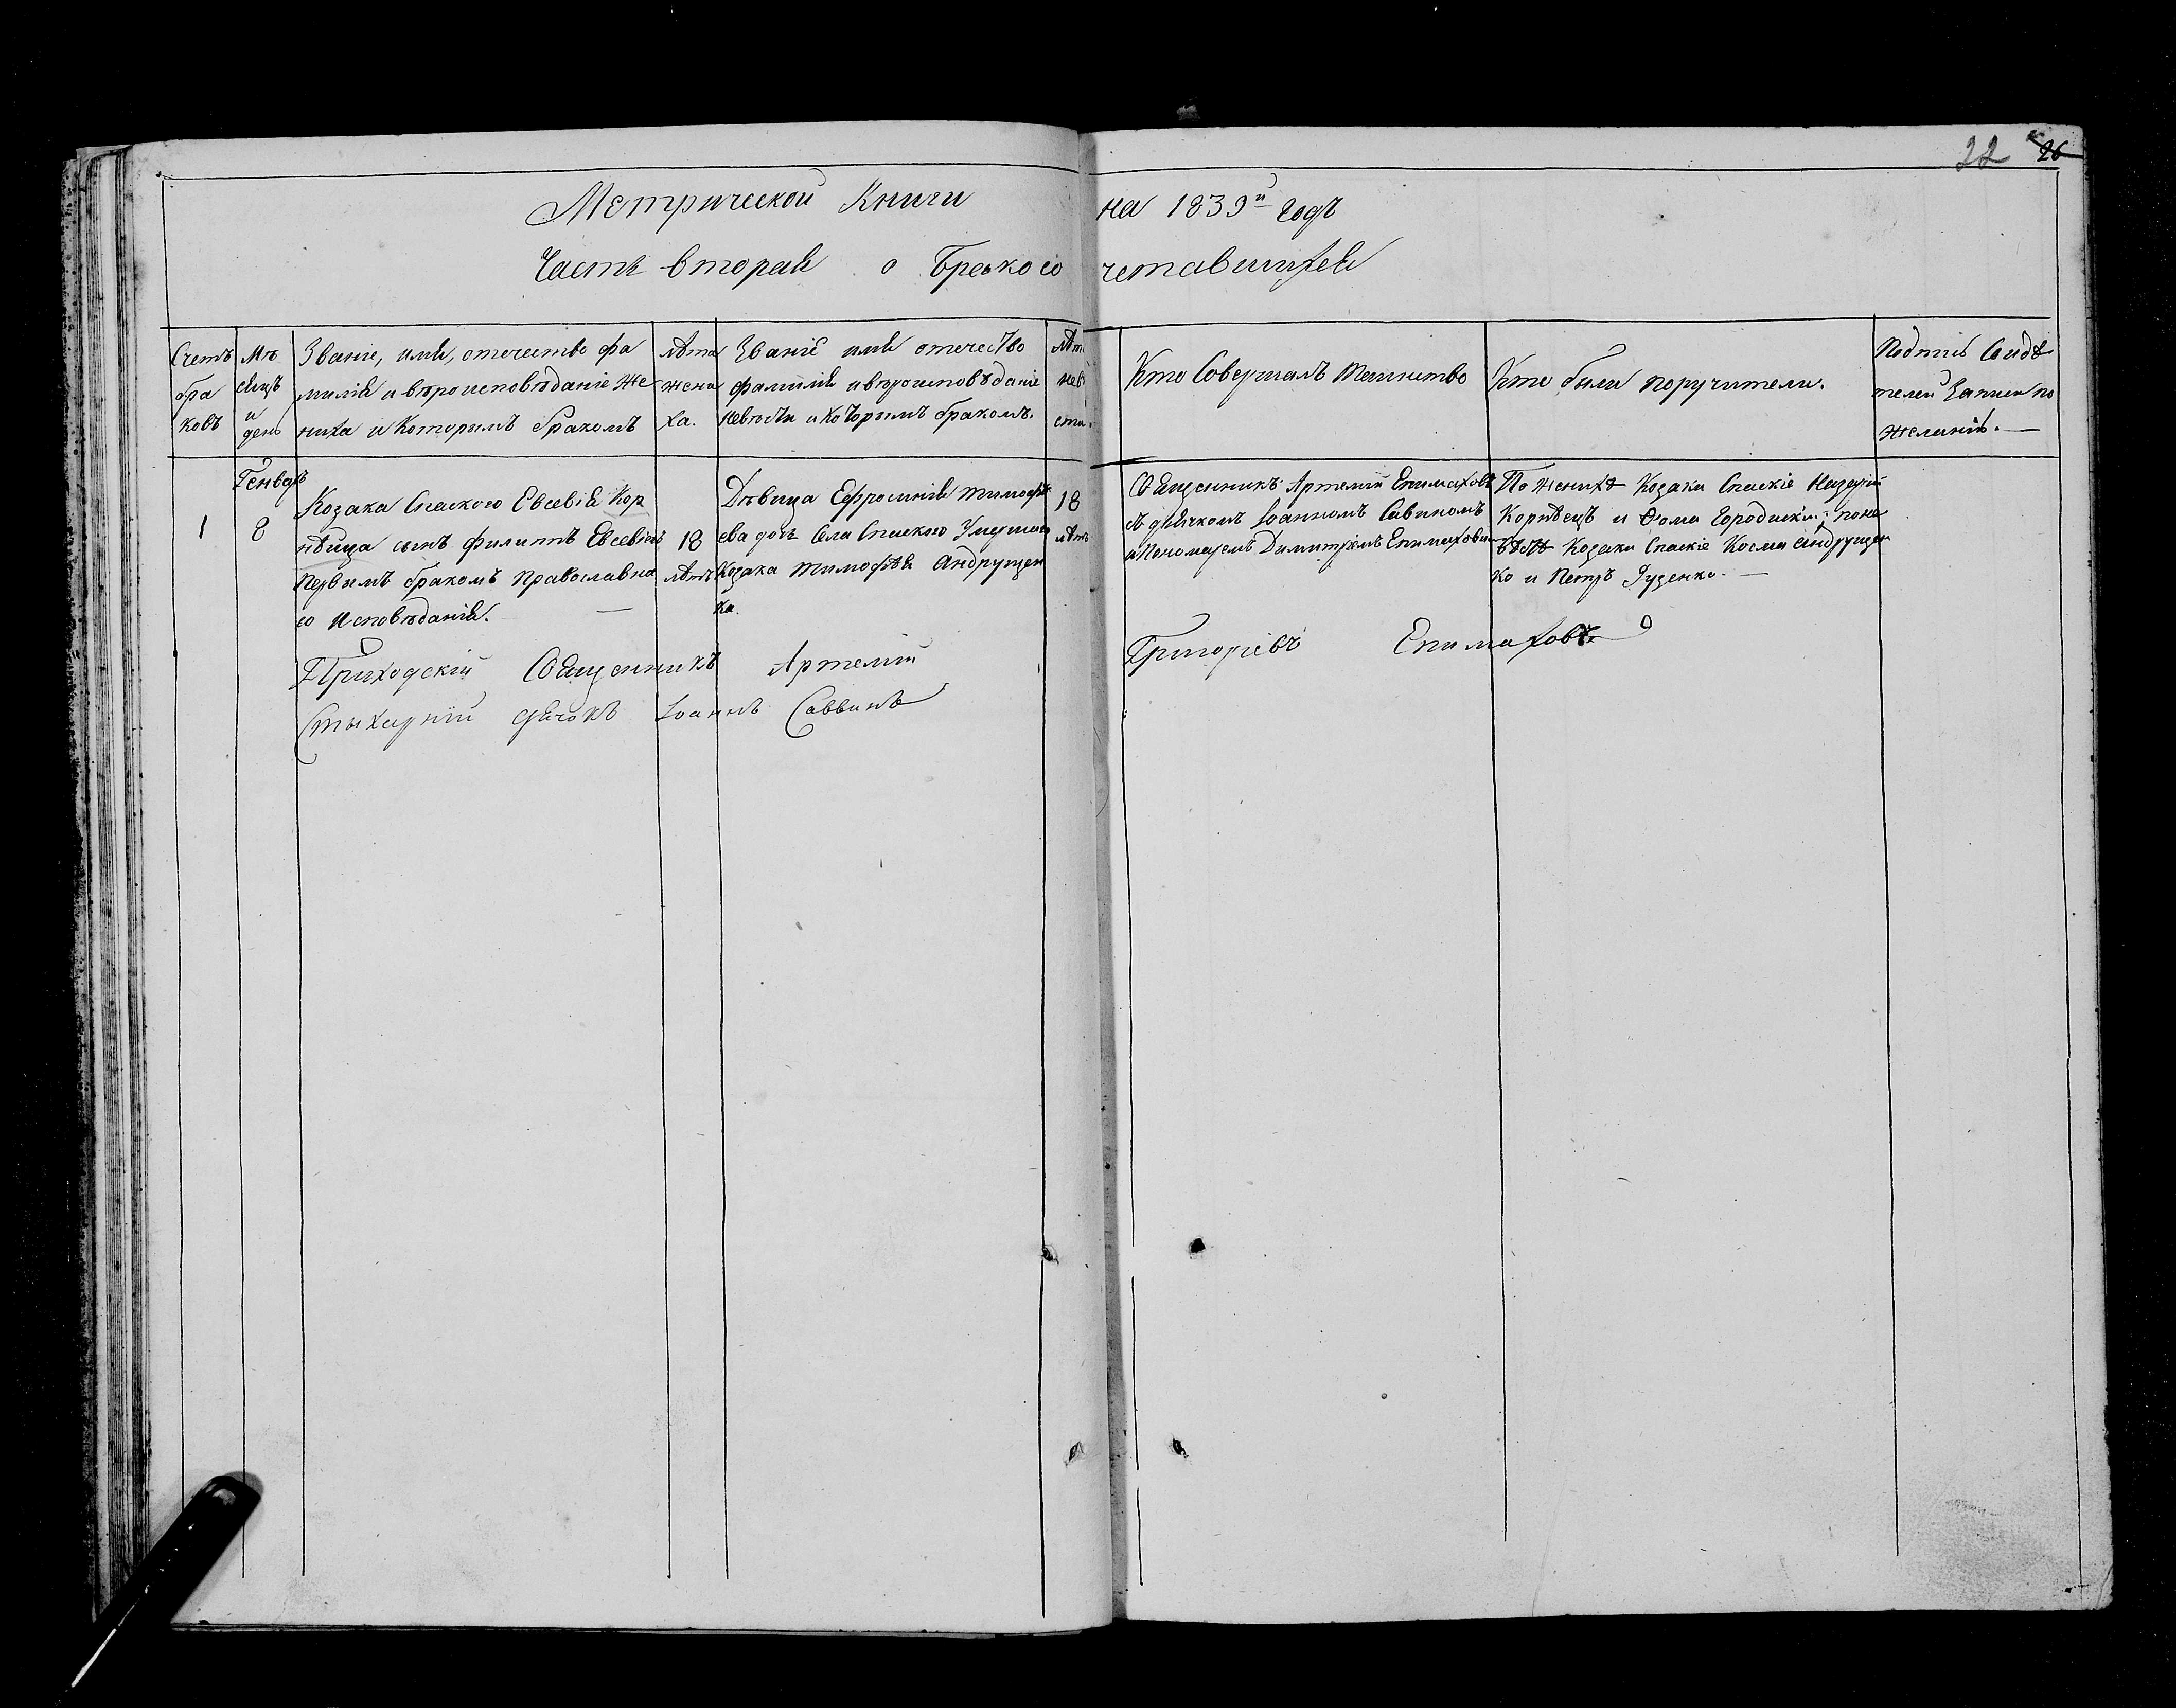 22 26
Метрической Книги на 1839й годъ
Часть вторая о бракосочетавшихся
Счетъ
бра
ковъ
Мѣ
сяцъ
и
день
Званіе, имя, отечество фа
милія и вѣроисповѣданіе Же
ниха и Которымъ бракомъ
лѣта
жени
ха.
Званіе имя отечество
фамилія и вѣроисповѣданіе
невѣсты и которымъ бракомъ.
Лѣт
нев
ста
Кто Совершалъ Таинство
Кто были поручители.
Подпись Свидѣ
телей Записи по
желанію.
1
Генварь
8
Козака Спаского Евсевія Кор
нѣйца сынъ Филиппъ Евсевіевъ
первымъ бракомъ православна
го исповѣданія.
18
лѣтъ
Дѣвица Ефросинія Тимофѣ
ева дочь Села Спаского Умершаго
Козака Тимофѣя Андрущен
ка.
18
лѣтъ
Священникъ Артемій Епимаховъ
съ дьячкомъ Іоанномъ Савиномъ
и пономаремъ Димитріемъ Епимаховим
По женихѣ Козаки Спаскіе Назарій
Корнѣецъ и Ѳома Городискій; по не
вѣстѣ Козаки Спаскіе Косма Андрущен
ко и Петръ Руденко.
Приходскій Священникъ Артемій Григоріевъ Епимаховъ
Стыхарній дячокъ Іоаннъ Саввинъ